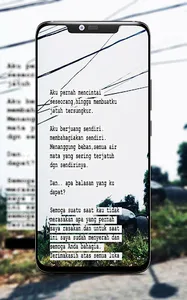 Aku pernah mencintai
seseorang,hingga membuatku
jatuh tersungkur.
Aku berjuang sendiri.
membahagiakan sendiri.
Menanggung beban,semua air
mata yang sering terjatuh
dgn sendirinya.
Dan.. apa balasan yang ku
dapat?
Semoga suatu saat kau tidak
merasakan apa yang pernah
saya rasakan dan untuk saat
ini saya sudah menyerah dan
semoga Anda bahagia.
Terimakasih atas semua luka